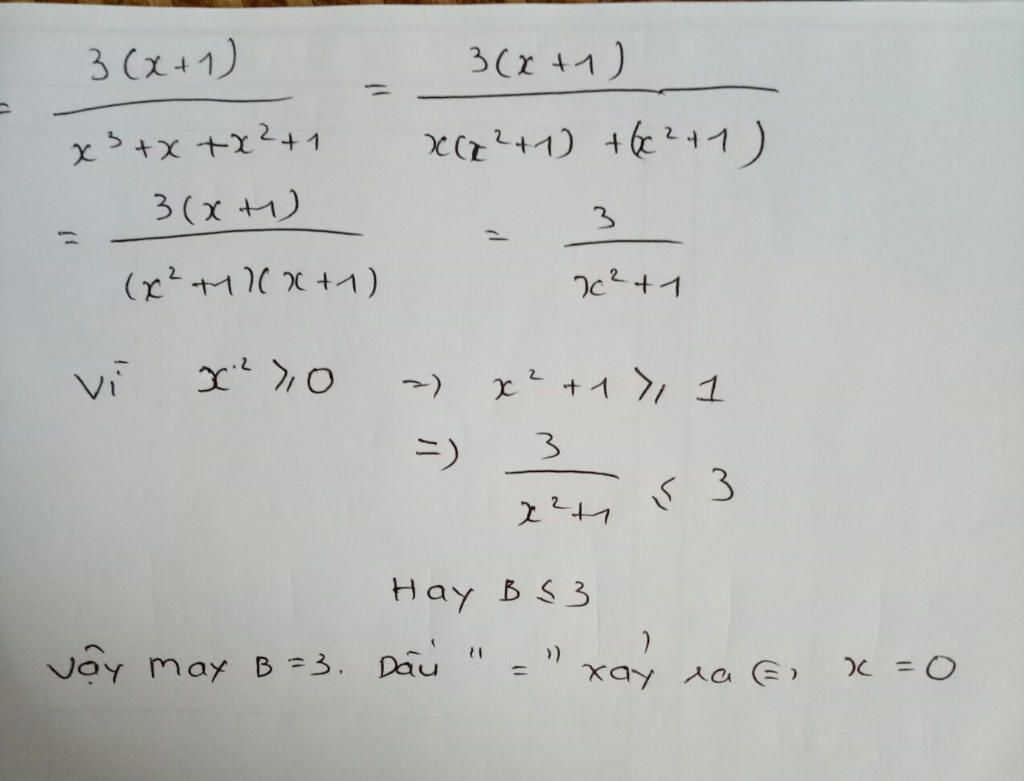 = 3(x+1) / x³+x+x²+1 = 3(x+1) / x(x²+1) + (x²+1)
= 3(x+1) / (x²+1)(x+1) = 3 / x²+1
Vì x² ⩾ 0 => x²+1 ⩾ 1
=> 3 / x²+1 ⩽ 3
Hay B ⩽ 3
Vậy max B = 3. Dấu "=" xảy ra <=> x = 0